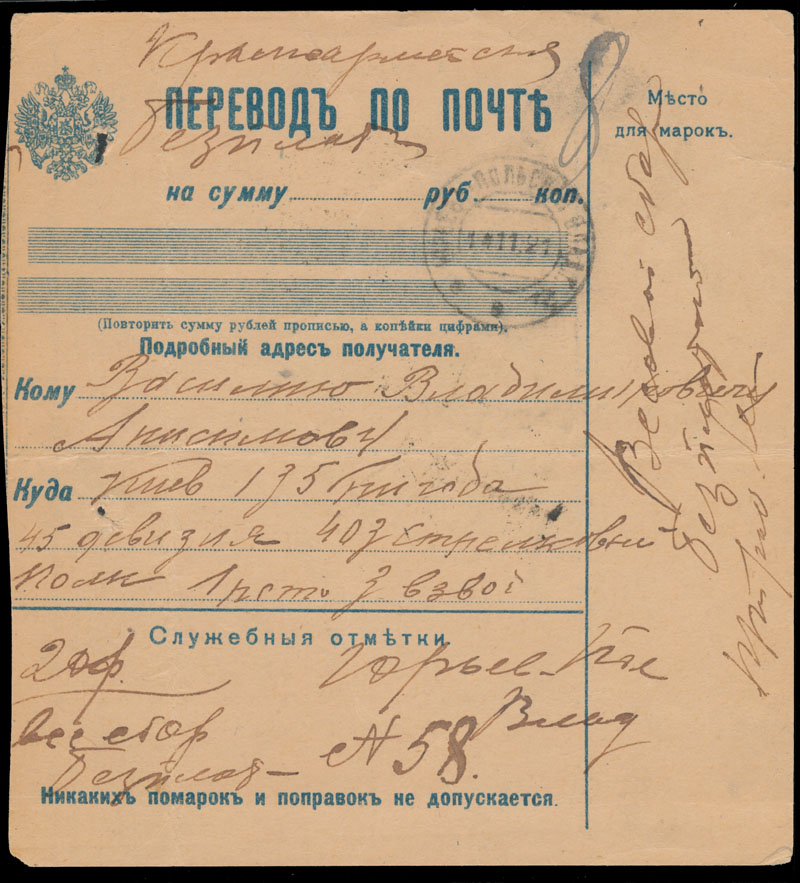 Красноармейская
ПЕРЕВОДЪ ПО ПОЧТѢ
безплат
Мѣсто
для марокъ.
на сумму руб. коп.
14.11.21
(Повторить сумму рублей прописью, а копѣйки цифрами).
Подробный адресъ получателя.
Кому Василию Владимировичу
Анисимову
Куда Киев 135 бригада
45 дивизия 403 стрелковый
полк 1 рота 3 взвод
Весовой сбор
безплатно
Служебныя отмѣтки.
20ф. Юрьев-Пол
Влад
вес сбор
безплат- N 58.
Никакихъ помарокъ и поправокъ не допускается.